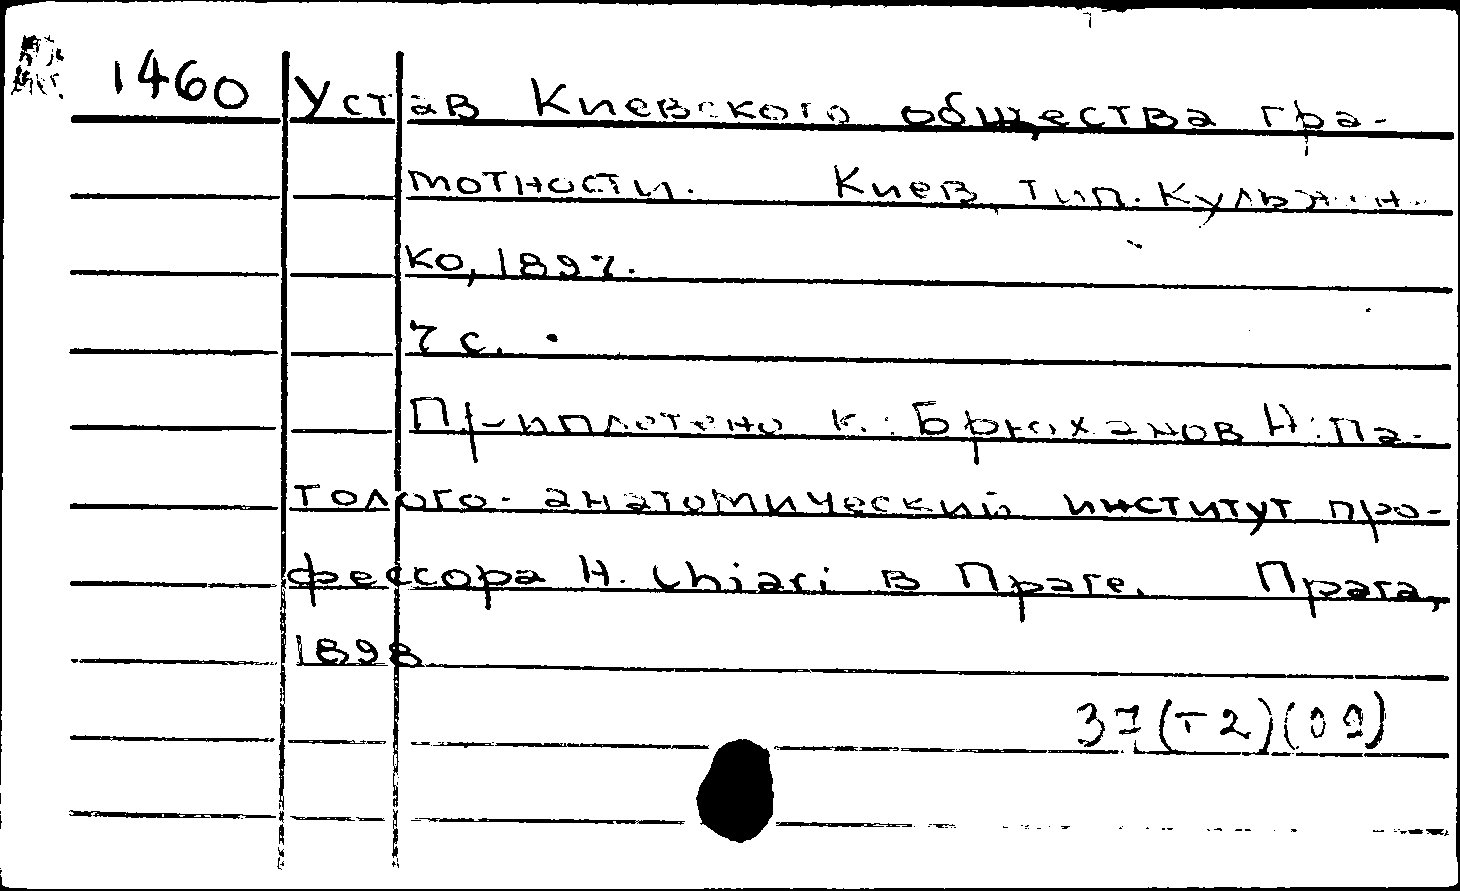 1460 Устав Киевского общества гра-
мотности. Киев, тип. Кульжен-
ко, 1897.
7 с.
Приплетено к: Брюханов Н. Па-
толого-анатомический институт про-
фессора H. Chiari в Праге. Прага,
1898
37(Т2)(09)